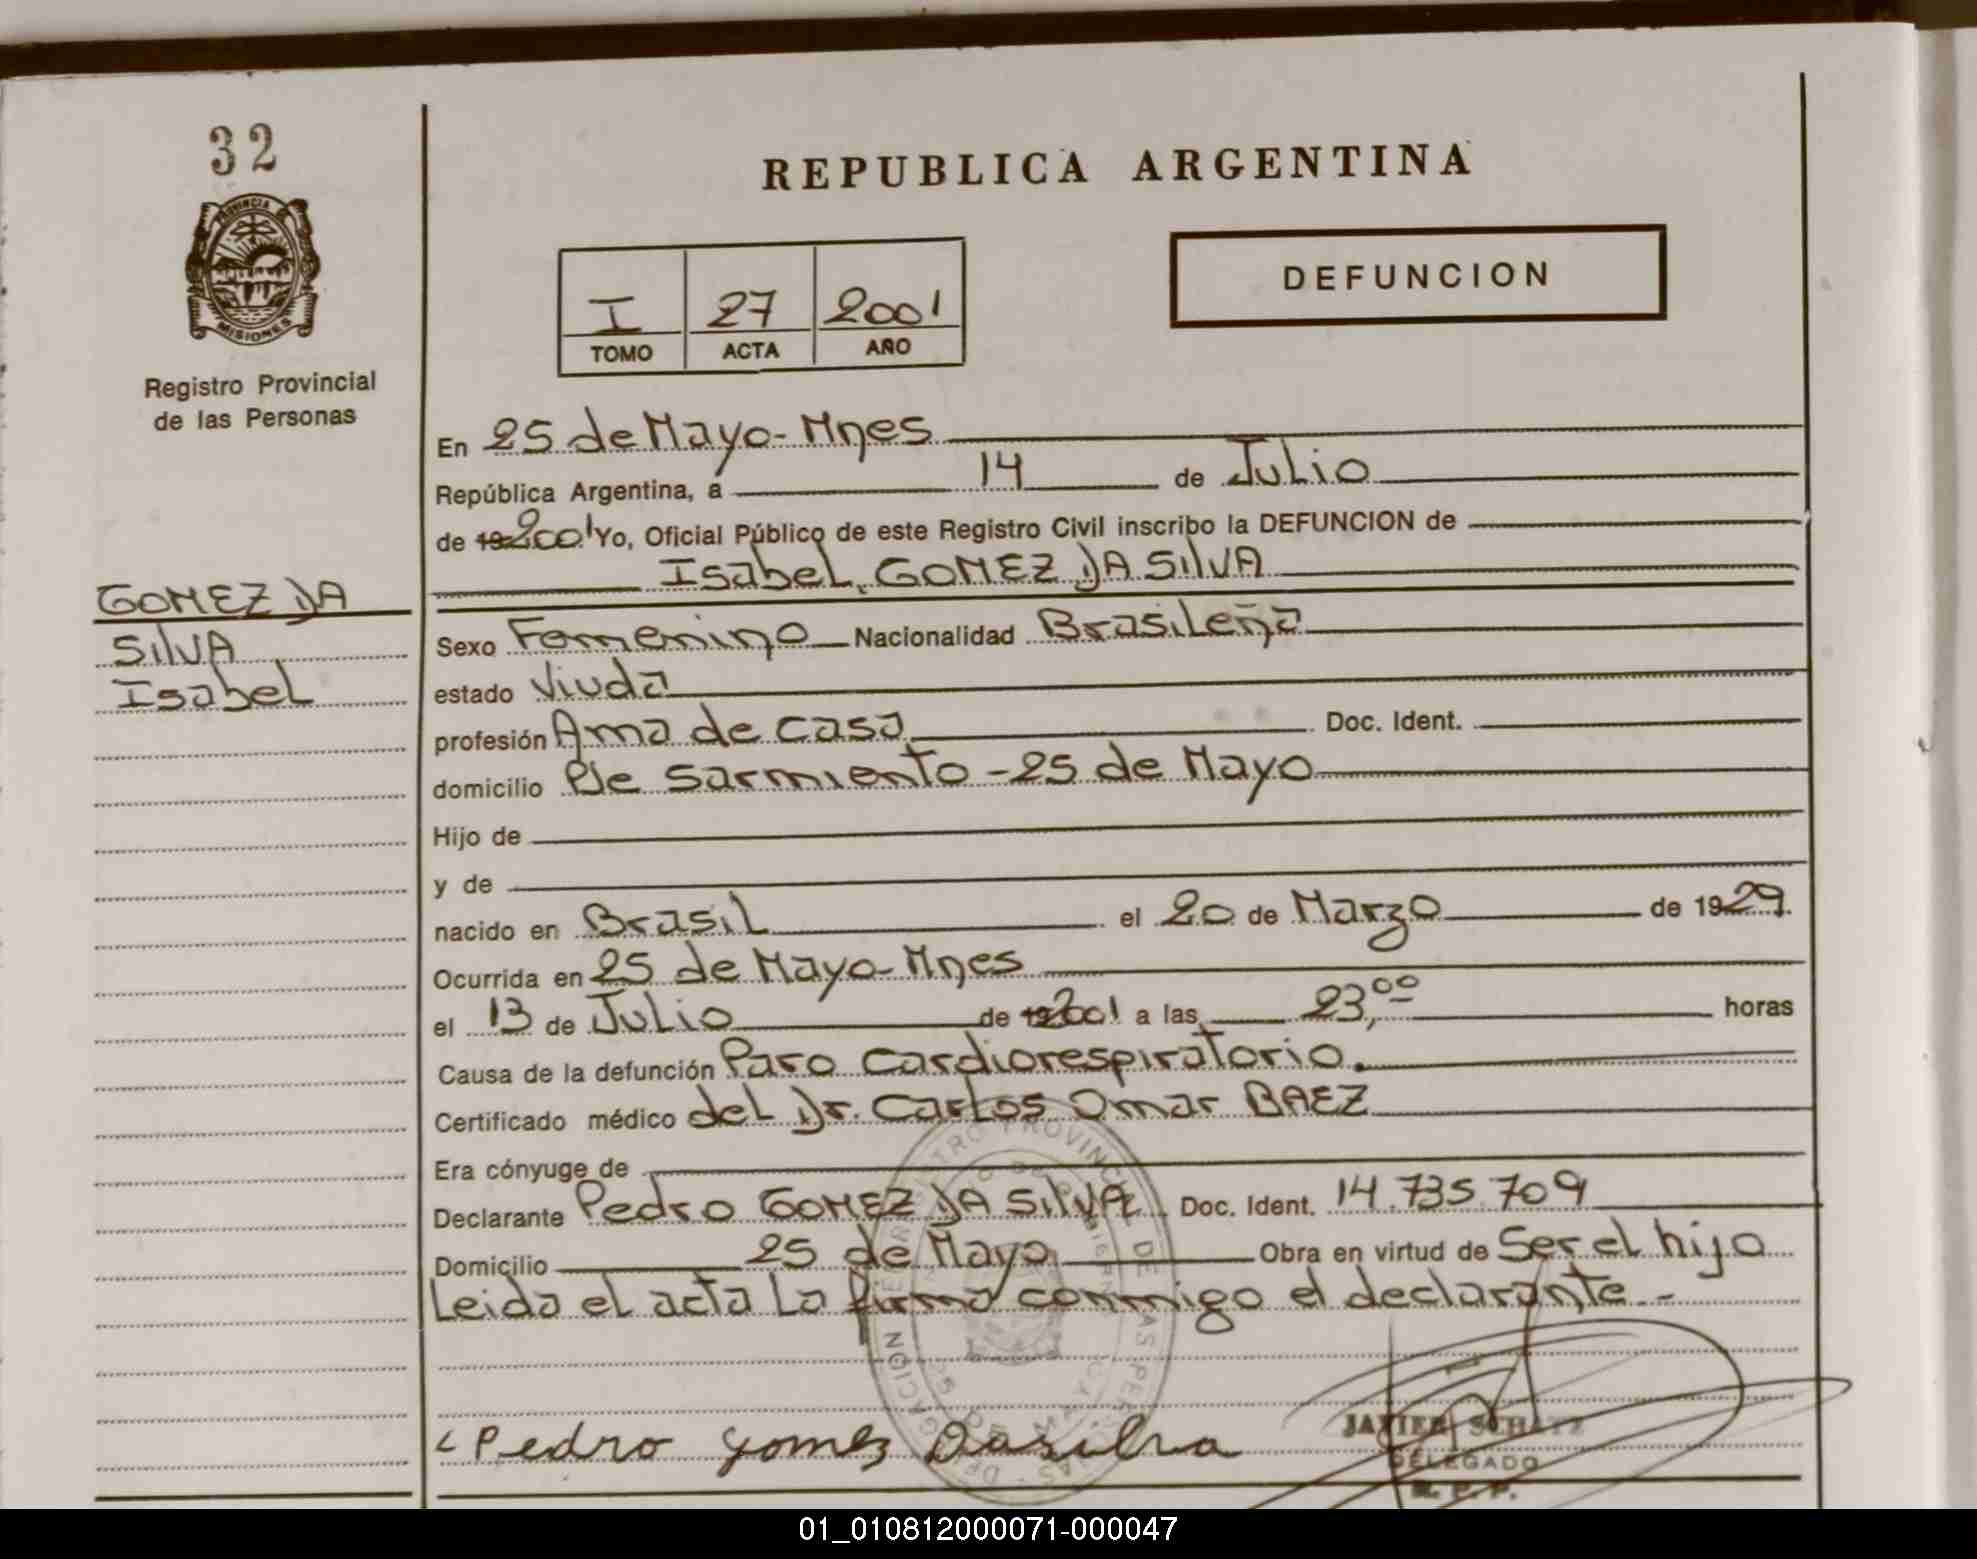 32
PROVINCIA DE
MISIONES
Registro Provincial
de las Personas
GOMEZ DA
SILVA
Isabel
REPUBLICA ARGENTINA
I 27 2001
TOMO ACTA AÑO
DEFUNCION
En 25 de Mayo-Mnes
República Argentina, a 14 de Julio
de 19 2001 Yo, Oficial Público de este Registro Civil inscribo la DEFUNCION de
Isabel, GOMEZ DA SILVA
Sexo Femenino Nacionalidad Brasileña
estado Viuda
profesión Ama de casa Doc. Ident.
domicilio Pje Sarmiento - 25 de Mayo
Hijo de
y de
nacido en Brasil el 20 de Marzo de 1929.
Ocurrida en 25 de Mayo-Mnes
el 13 de Julio de 19 2001 a las 23,00 horas
Causa de la defunción Paro cardiorespiratorio.
Certificado médico del Dr. Carlos Omar BAEZ
Era cónyuge de
Declarante Pedro GOMEZ DA SILVA Doc. Ident. 14.735.709
Domicilio 25 de Mayo Obra en virtud de Ser el hijo
Leida el acta La firma conmigo el declarante.-
Pedro gomez Dasilva
JAVIER SCHATZ
DELEGADO
R. P. P.
REGISTRO PROVINCIAL DE LAS PERSONAS
DELEGACION
25 DE MAYO
01_010812000071-000047